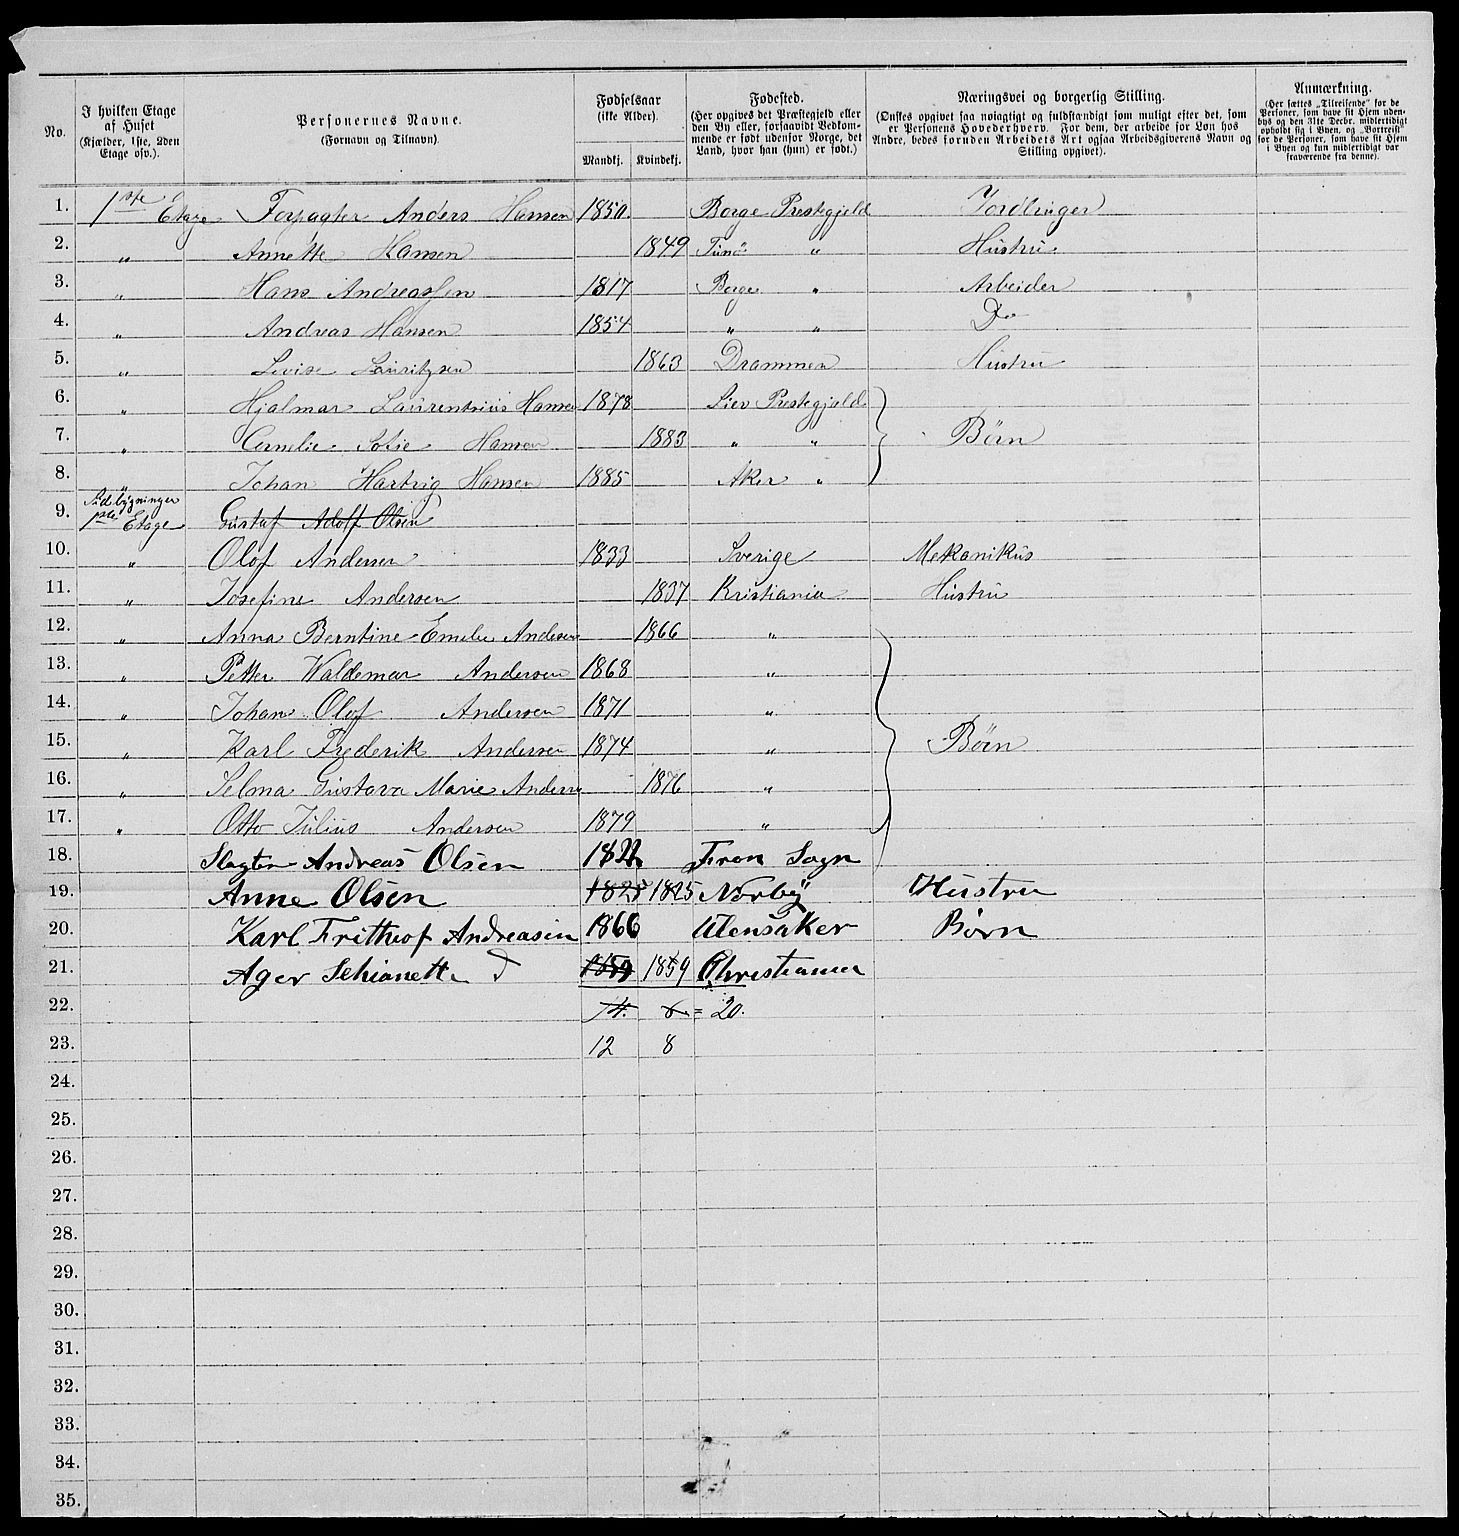 No.
I hvilken Etage af Huset (Kjælder, 1ste, 2den Etage osv.).
Personernes Navne. (Fornavn og Tilnavn).
Fødselsaar (ikke Alder).
Mandkj. Kvindekj.
Fødested. (Her opgives det Præstegjeld eller den By eller, forsaavidt Vedkommende er født udenfor Norge, det Land, hvor han (hun) er født.)
Næringsvei og borgerlig Stilling. (Ønskes opgivet saa nøiagtigt og fuldstændigt som muligt efter det, som er Personens Hovederhverv. For dem, der arbeide for Løn hos Andre, bedes foruden Arbeidets Art ogsaa Arbeidsgiverens Navn og Stilling opgivet).
Anmærkning. (Her sættes „Tilreisende" for de Personer, som have sit Hjem udenbys og den 31te Decbr. midlertidigt opholdt sig i Byen, og „Bortreist" for de Personer, som have sit Hjem i Byen og kun midlertidigt var fraværende fra denne).
1. 1ste Etage Forpagter Anders Hansen 1850. Borge Prestegjeld Jordbruger
2. „ Annette Hansen 1849 Tunø „ Hustru
3. „ Hans Andreassen 1817 Borge „ Arbeider
4. „ Andreas Hansen 1854 „ „ Do
5. „ Lovise Lauritzen 1863 Drammen Hustru
6. „ Hjalmar Laurentsius Hansen 1878 Lier Prestegjeld
7. „ Cornelie Sofie Hansen 1883 „ „ Børn
8. „ Johan Hartvig Hansen 1885 Aker „
9. Sidbygninger 1ste Etage Gustaf Adolf Olsen
10. „ Olof Andersen 1833 Sverige Mekanikus
11. „ Josefine Andersen 1837 Kristiania Hustru
12. „ Anna Berntine Emelie Andersen 1866 „
13. „ Petter Waldemar Andersen 1868 „
14. „ Johan Olof Andersen 1871 „
15. „ Karl Frederik Andersen 1874 „ Børn
16. „ Selma Gustava Marie Andersen 1876 „
17. „ Otto Julius Andersen 1879 „
18. Slagter Andreas Olsen Fron Sogn
19. Anne Olsen 1825 1825 Norby Hustru
20. Karl Frithiof Andreasen 1866 Ulensaker Børn
21. Ager 1859 1859 Christiania
22. 14. 6 = 20.
23. 12 8
24.
25.
26.
27.
28.
29.
30.
31.
32.
33.
34.
35.